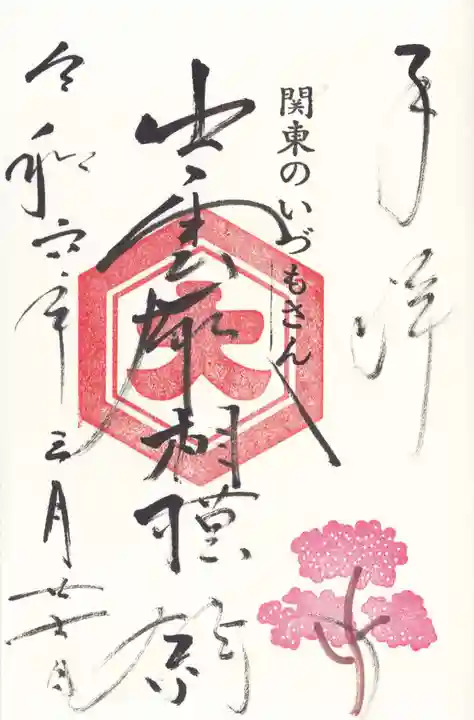 奉拝
関東のいづもさん
出雲大社相模分祠
大
令和六年三月